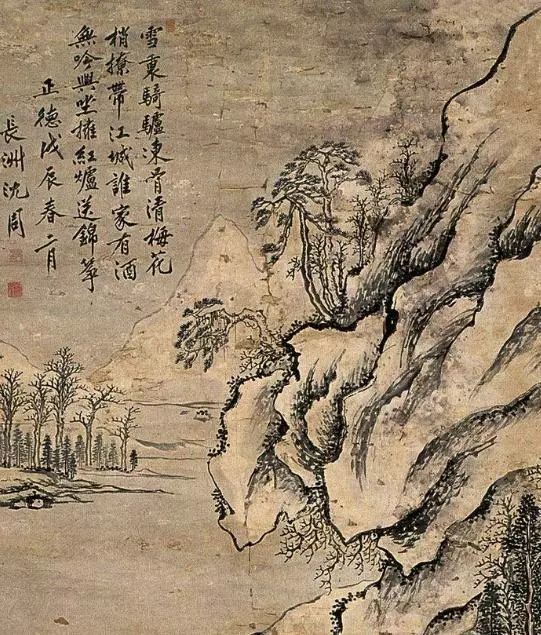 雪裏騎驢凍骨清梅花
梢撩帶江城誰家有酒
無吟興坐擁紅爐送錦箏
正德戊辰春二月
長洲沈周